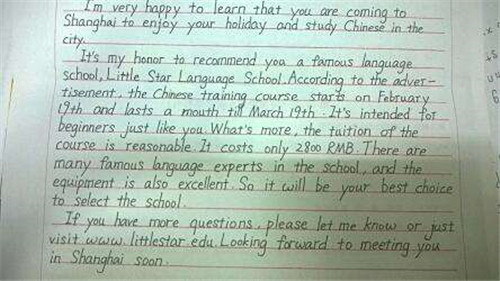 I'm very happy to learn that you are coming to
Shanghai to enjoy your holiday and study Chinese in the
city.
It's my honor to recommend you a famous language
school, Little Star Language School. According to the adver-
tisement, the Chinese training course starts on February
19th and lasts a mouth till March 19th. It's intended for
beginners just like you. What's more, the tuition of the
course is reasonable. It costs only 2800 RMB. There are
many famous language experts in the school, and the
equipment is also excellent. So it will be your best choice
to select the school.
If you have more questions, please let me know or just
visit www.littlestar.edu. Looking forward to meeting you
in Shanghai soon.